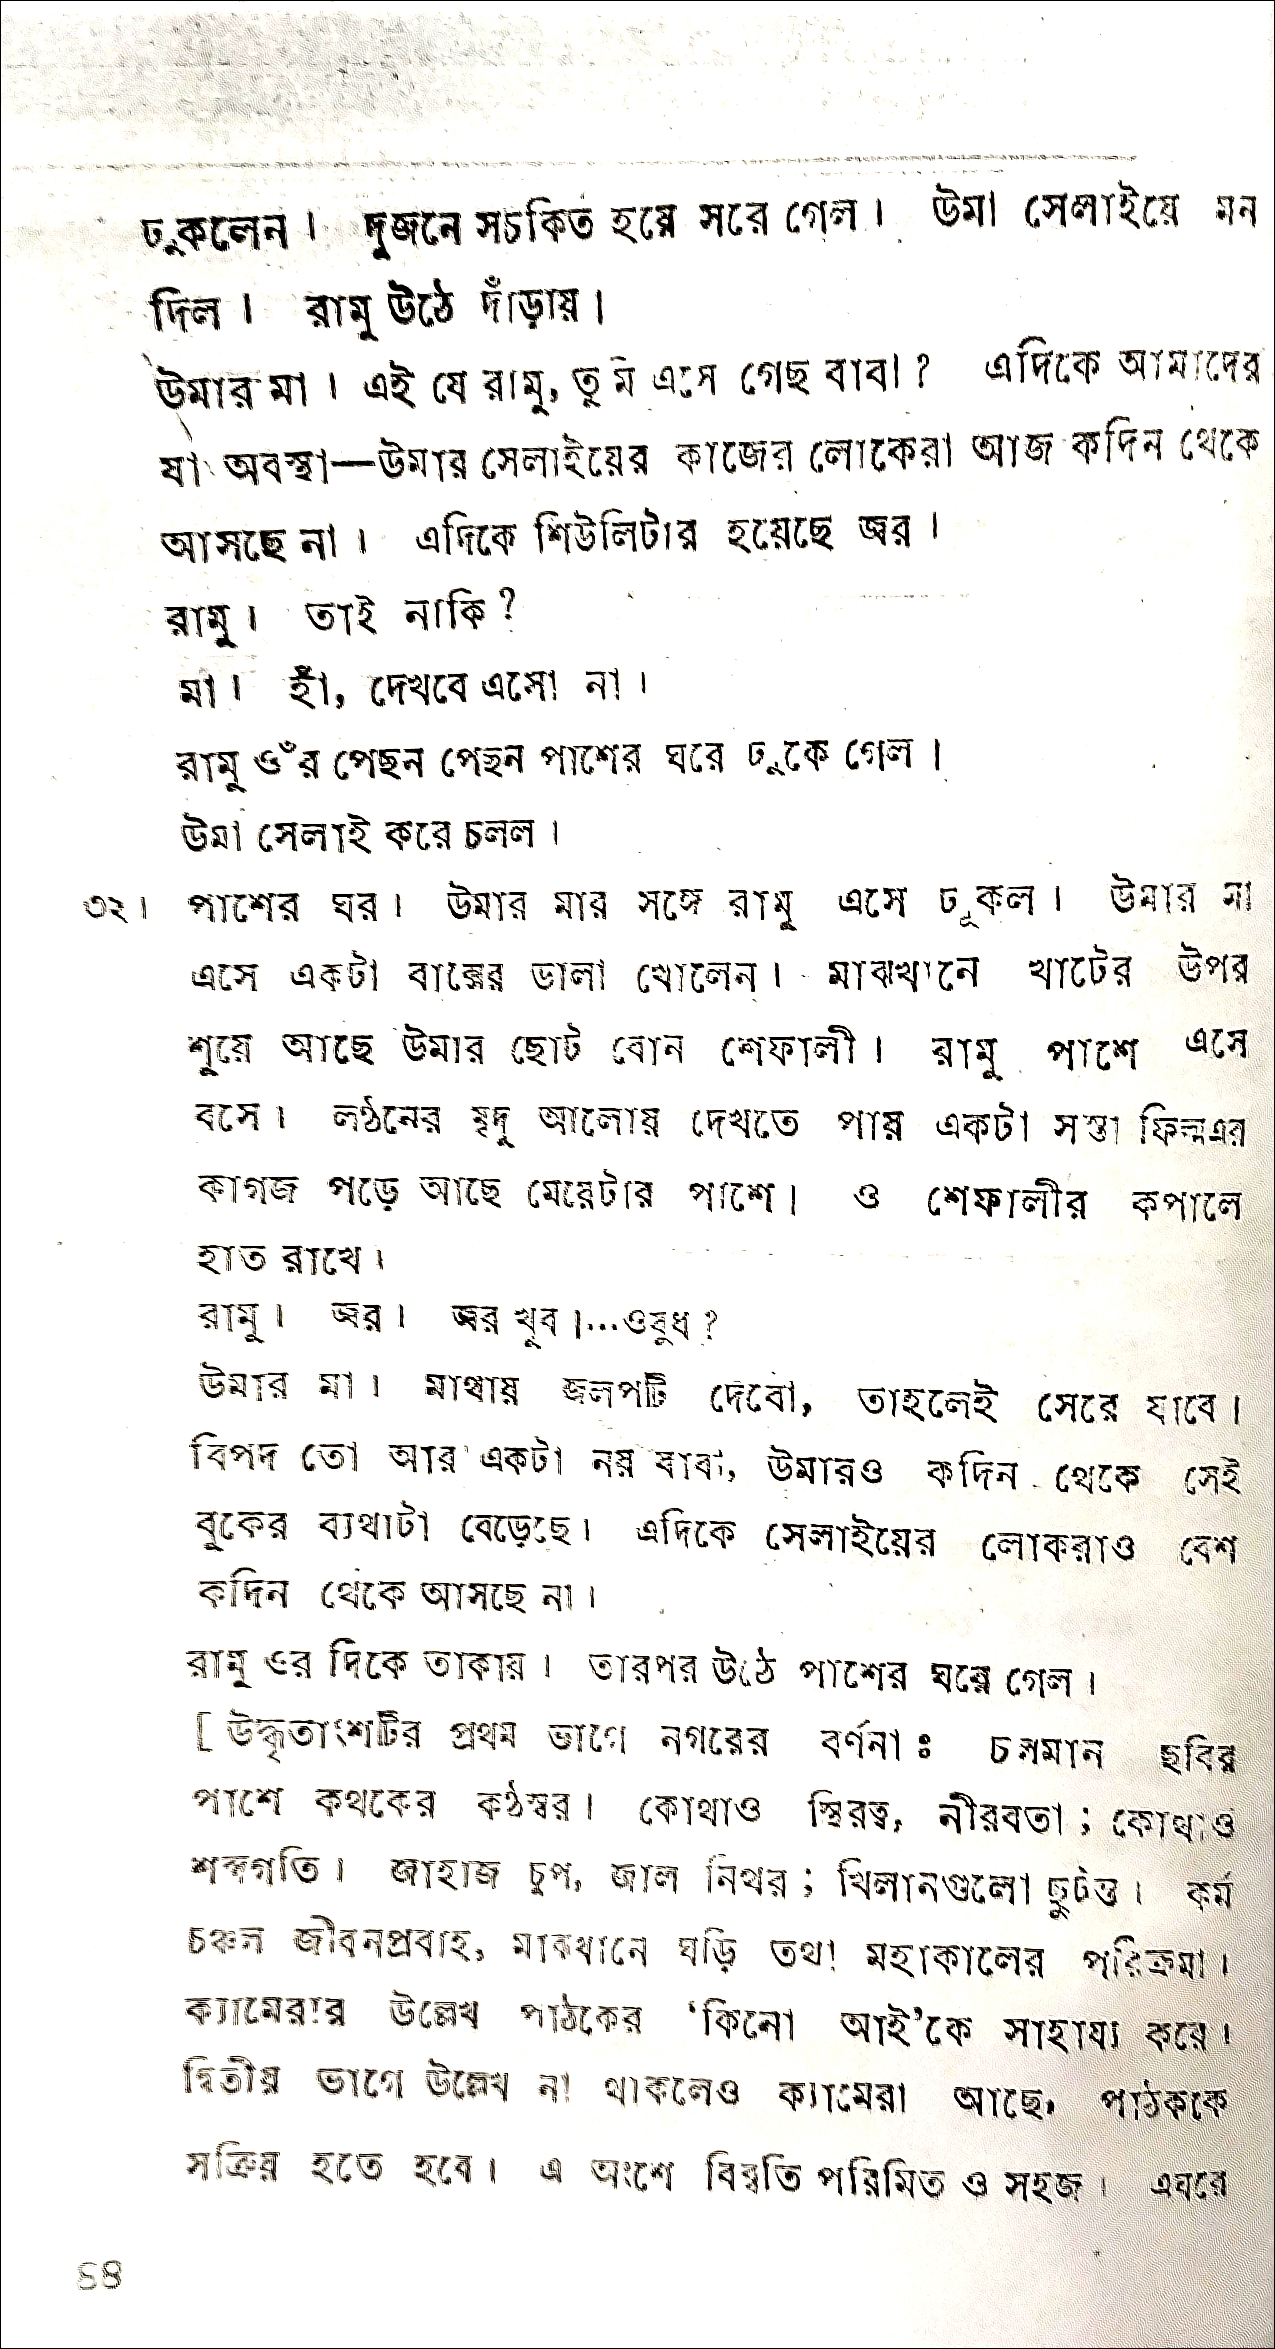 ঢুকলেন। দুজনে সচকিত হয়ে সরে গেল। উমা সেলাইয়ে মন
দিল। রামু উঠে দাঁড়ায়।
উমার মা। এই যে রামু, তুমি এসে গেছ বাবা? এদিকে আমাদের
যা অবস্থা—উমার সেলাইয়ের কাজের লোকেরা আজ কদিন থেকে
আসছে না। এদিকে শিউলিটার হয়েছে জ্বর।
রামু। তাই নাকি?
মা। হাঁ, দেখবে এসো না।
রামু ওঁর পেছন পেছন পাশের ঘরে ঢুকে গেল।
উমা সেলাই করে চলল।
৩২। পাশের ঘর। উমার মার সঙ্গে রামু এসে ঢুকল। উমার মা
এসে একটা বাক্সের ডালা খোলেন। মাঝখানে খাটের উপর
শুয়ে আছে উমার ছোট বোন শেফালী। রামু পাশে এসে
বসে। লণ্ঠনের মৃদু আলোয় দেখতে পায় একটা সস্তা ফিল্মএর
কাগজ পড়ে আছে মেয়েটার পাশে। ও শেফালীর কপালে
হাত রাখে।
রামু। জ্বর। জ্বর খুব।...ওষুধ?
উমার মা। মাথায় জলপটি দেবো, তাহলেই সেরে যাবে।
বিপদ তো আর একটা নয় বাবা, উমারও কদিন থেকে সেই
বুকের ব্যথাটা বেড়েছে। এদিকে সেলাইয়ের লোকরাও বেশ
কদিন থেকে আসছে না।
রামু ওর দিকে তাকায়। তারপর উঠে পাশের ঘরে গেল।
[ উদ্ধৃতাংশটির প্রথম ভাগে নগরের বর্ণনা ঃ চলমান ছবির
পাশে কথকের কণ্ঠস্বর। কোথাও স্থিরত্ব, নীরবতা; কোথাও
শব্দগতি। জাহাজ চুপ, জাল নিথর; খিলানগুলো ছুটন্ত। কর্ম
চঞ্চল জীবনপ্রবাহ, মাঝখানে ঘড়ি তথা মহাকালের পরিক্রমা।
ক্যামেরার উল্লেখ পাঠকের ‘কিনো আই’কে সাহায্য করে।
দ্বিতীয় ভাগে উল্লেখ না থাকলেও ক্যামেরা আছে, পাঠককে
সক্রিয় হতে হবে। এ অংশে বিবৃতি পরিমিত ও সহজ। এঘরে
৪৪